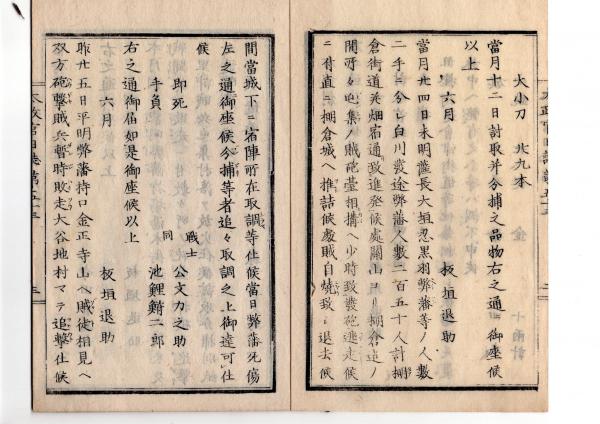 大小刀 廿九本
當月十二日討取并分捕之品物右之通ニ御座候
以上
六月 板垣退助
當月廿四日未明薩長大垣忍黒羽弊藩等ノ人數
二手ニ分レ白川發途弊藩人數二百五十人計棚
倉街道英畑宿通政進發候處關山ヨリ棚倉迄ノ
間所々屯集ノ賊砲臺相搆ヘ少時致發砲進走候
ニ付直ニ棚倉城ヘ推詰候處賊自燒致シ退去候
間當城下ニ宿陣所在取調等仕候當日弊藩死傷
左之通御座候分捕等者追々取調之上御達可仕
候
即死 戰士 公文力之助
手負 同 池鯉鮒二郎
右之通御届如是御座候以上
六月 板垣退助
昨廿五日平明弊藩持口金正寺山ヘ賊徒相見ヘ
双方砲撃賊兵暫時敗走大谷地村マテ追撃仕候
太政官日誌第五十三
三